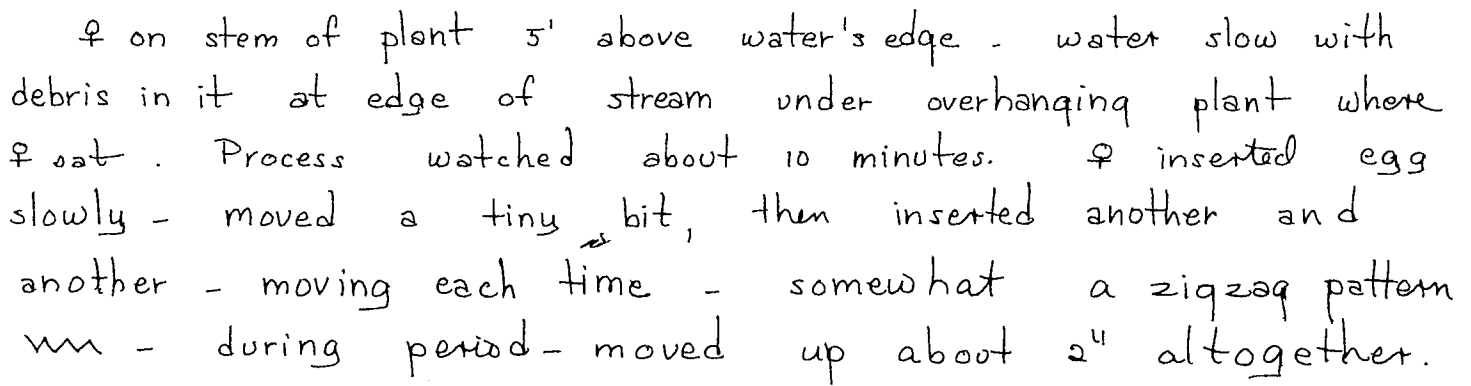 ♀ on stem of plant 5' above water's edge - water slow with
debris in it at edge of stream under overhanging plant where
♀ sat. Process watched about 10 minutes. ♀ inserted egg
slowly - moved a tiny bit, then inserted another and
another - moving each time - somewhat a zigzag pattern
- during period - moved up about 2" altogether.